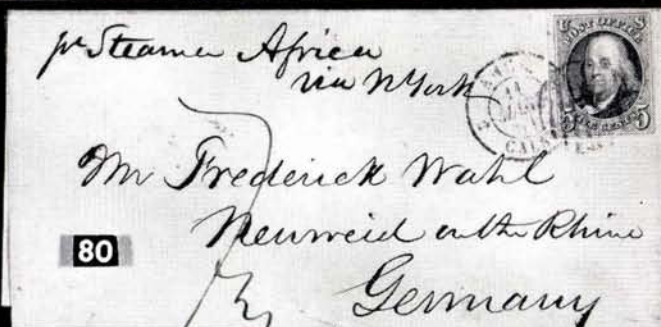 pr Steamer Africa
via N York
U S
POST OFFICE
5 FIVE CENTS 5
CALAIS
Mr Frederick Wahl
Neuweid on the Rhine
80
Germany